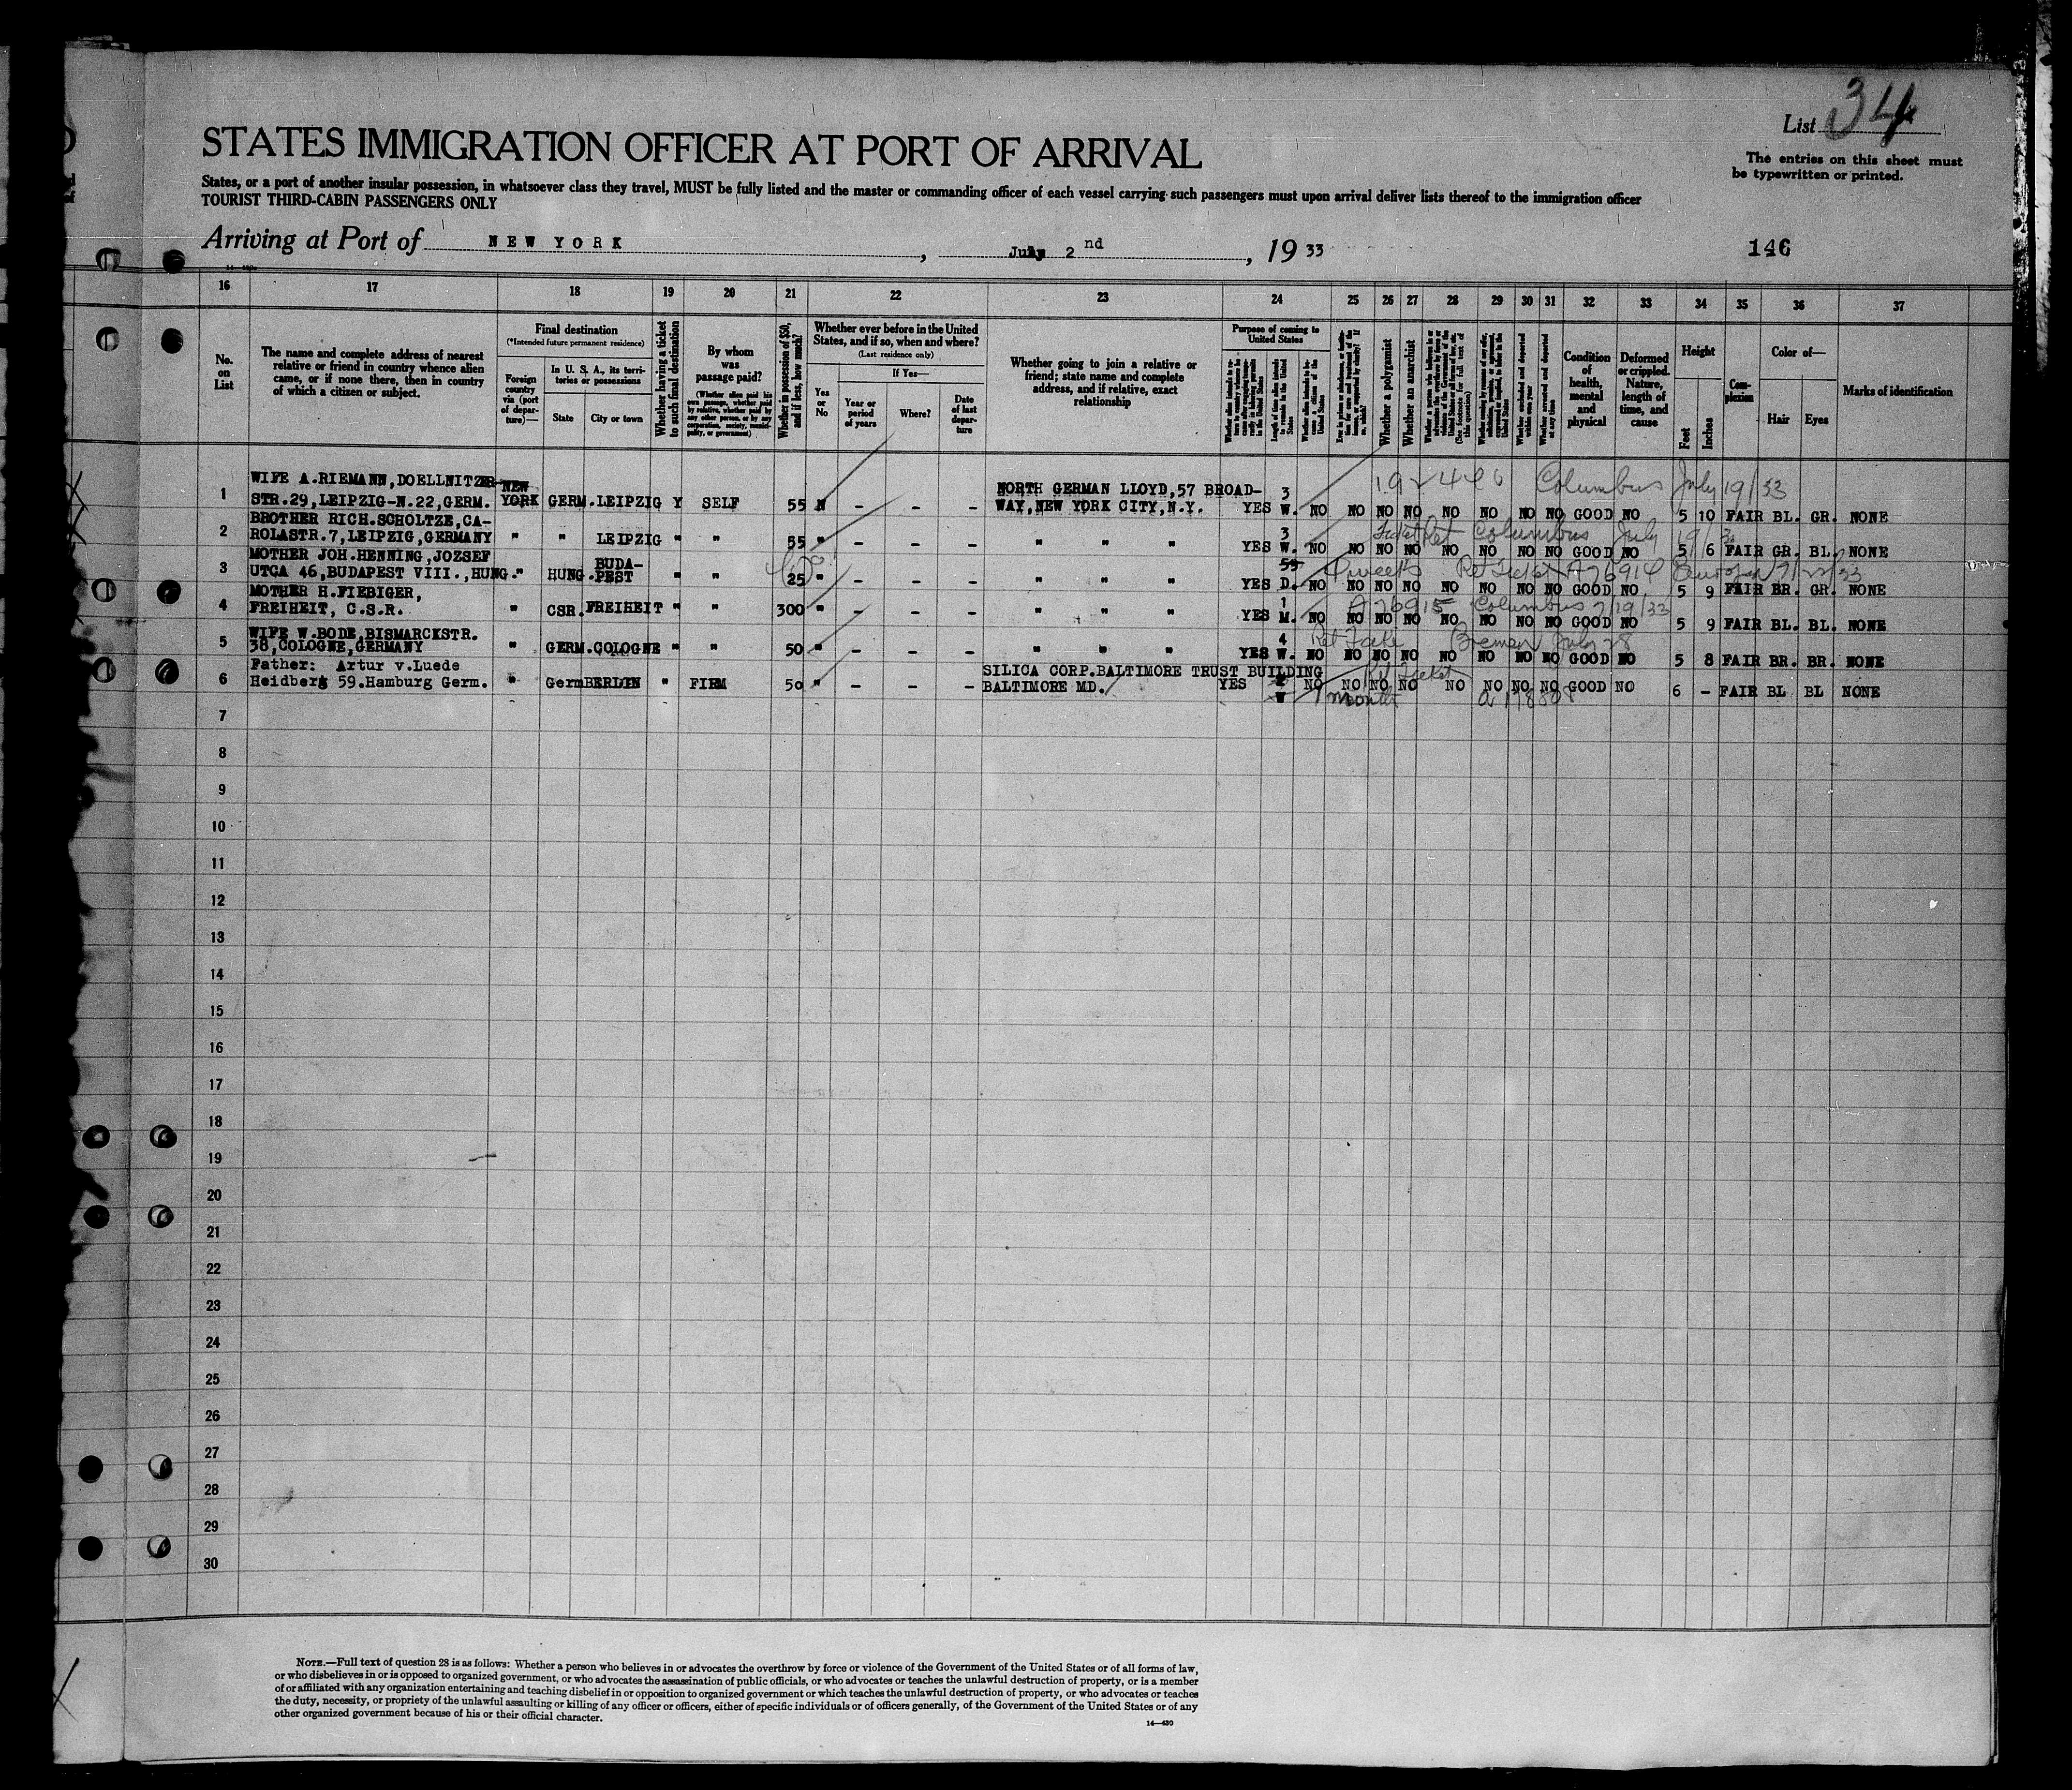 List 34
STATES IMMIGRATION OFFICER AT PORT OF ARRIVAL
The entries on this sheet must
be typewritten or printed.
States, or a port of another insular possession, in whatsoever class they travel, MUST be fully listed and the master or commanding officer of each vessel carrying such passengers must upon arrival deliver lists thereof to the immigration officer
TOURIST THIRD-CABIN PASSENGERS ONLY
Arriving at Port of NEW YORK, July 2nd, 1933
146
16 17 18 19 20 21 22 23 24 25 26 27 28 29 30 31 32 33 34 35 36 37
No. on List
The name and complete address of nearest
relative or friend in country whence alien
came, or if none there, then in country
of which a citizen or subject.
Final destination
(*Intended future permanent residence)
Foreign country via (port of departure)—
In U. S. A., its territories or possessions
State
City or town
Whether having a ticket to such final destination
By whom was passage paid?
(Whether alien paid his own passage, whether paid by relative, whether paid by any other person, or by any corporation, society, municipality, or government)
Whether in possession of $50, and if less, how much?
Whether ever before in the United
States, and if so, when and where?
(Last residence only)
Yes or No
If Yes—
Year or period of years
Where?
Date of last departure
Whether going to join a relative or
friend; state name and complete
address, and if relative, exact
relationship
Purpose of coming to United States
Length of time alien intends to remain in the United States
Whether alien intends to become a citizen of the United States
Whether a polygamist
Whether an anarchist
Whether excluded and deported within one year
Whether arrested and deported at any time
Condition of health, mental and physical
Deformed or crippled. Nature, length of time, and cause
Height
Feet
Inches
Complexion
Color of—
Hair
Eyes
Marks of identification
192446 Columbus July 19/33
1 WIFE A.RIEMANN,DOELLNITZER-
STR.29,LEIPZIG-N.22,GERM. NEW YORK GERM. LEIPZIG Y SELF 55 N - - - NORTH GERMAN LLOYD,57 BROAD-
WAY,NEW YORK CITY,N.Y. YES 3 W. NO NO NO NO NO NO NO NO GOOD NO 5 10 FAIR BL. GR. NONE
Ticket Ret Columbus July 19/33
2 BROTHER RICH.SCHOLTZE,CA-
ROLASTR.7,LEIPZIG,GERMANY " " LEIPZIG " " 55 " - - - " " " YES 3 W. NO NO NO NO NO NO NO NO GOOD NO 5 6 FAIR GR. BL. NONE
4 weeks Ret Ticket A76914 Europa 7/22/33
3 MOTHER JOH.HENNING,JOZSEF
UTCA 46,BUDAPEST VIII.,HUNG. " HUNG. BUDA-
PEST " " 25 " - - - " " " YES 55 D. NO NO NO NO NO NO NO NO GOOD NO 5 9 FAIR BR. GR. NONE
A76915 Columbus 7/19/33
4 MOTHER H.FIEBIGER,
FREIHEIT, C.S.R. " CSR. FREIHEIT " " 300 " - - - " " " YES 1 M. NO NO NO NO NO NO NO NO GOOD NO 5 9 FAIR BL. BL. NONE
Bremen July 28
5 WIFE W.BODE,BISMARCKSTR.
38,COLOGNE,GERMANY " GERM. COLOGNE " " 50 " - - - " " " YES 4 W. NO NO NO NO NO NO NO NO GOOD NO 5 8 FAIR BR. BR. NONE
6 Father: Artur v.Luede
Heidberg 59.Hamburg Germ. " Germ BERLIN " FIRM 50 " - - - SILICA CORP.BALTIMORE TRUST BUILDING
BALTIMORE MD. YES W NO NO NO NO NO NO NO NO GOOD NO 6 - FAIR BL BL NONE
Ret Ticket
1 month
7
8
9
10
11
12
13
14
15
16
17
18
19
20
21
22
23
24
25
26
27
28
29
30
NOTE.—Full text of question 28 is as follows: Whether a person who believes in or advocates the overthrow by force or violence of the Government of the United States or of all forms of law,
or who disbelieves in or is opposed to organized government, or who advocates the assassination of public officials, or who advocates or teaches the unlawful destruction of property, or is a member
of or affiliated with any organization entertaining and teaching disbelief in or opposition to organized government or which teaches the unlawful destruction of property, or who advocates or teaches
the duty, necessity, or propriety of the unlawful assaulting or killing of any officer or officers, either of specific individuals or of officers generally, of the Government of the United States or of any
other organized government because of his or their official character.
14—430